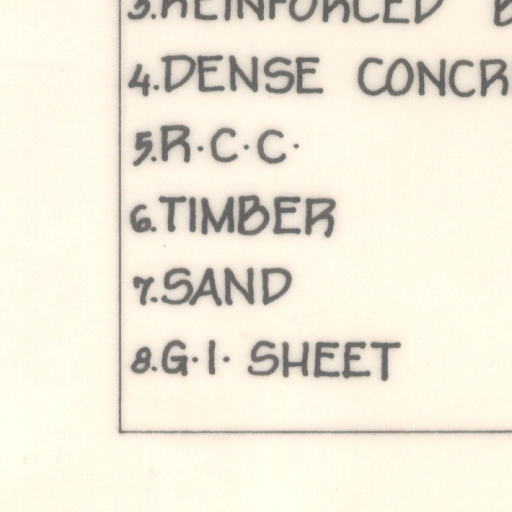 3.REINFORCED
4.DENSE
5.R.C.C.
6.TIMBER
7.SAND
8.G.I. SHEET